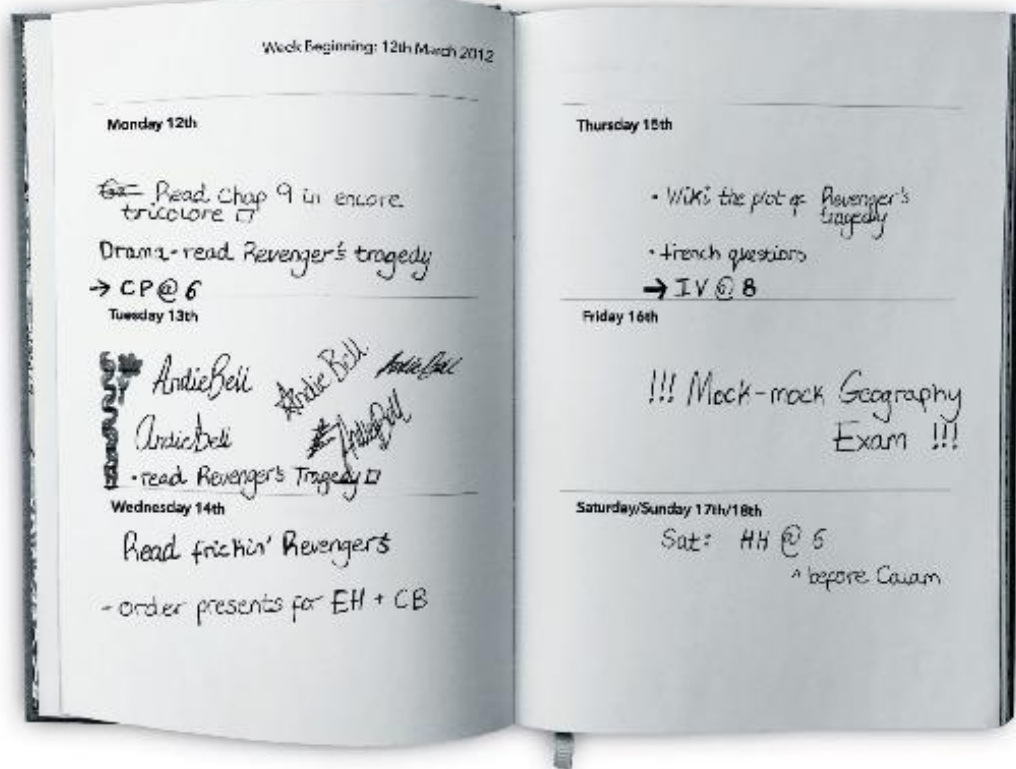 Week Beginning: 12th March 2012
Monday 12th
Read Chap 9 in encore
tricolore
Drama - read Revenger's tragedy
→ CP @ 6
Tuesday 13th
Andie Bell
Andie Bell
Andie Bell
Andie Bell
Andie Bell
• read Revenger's Tragedy
Wednesday 14th
Read frickin' Revengers
- order presents for EH + CB
Thursday 15th
• Wiki the plot of Revenger's
tragedy
• french questions
→ IV @ 8
Friday 16th
!!! Mock-mock Geography
Exam !!!
Saturday/Sunday 17th/18th
Sat: HH @ 6
^ before Calam